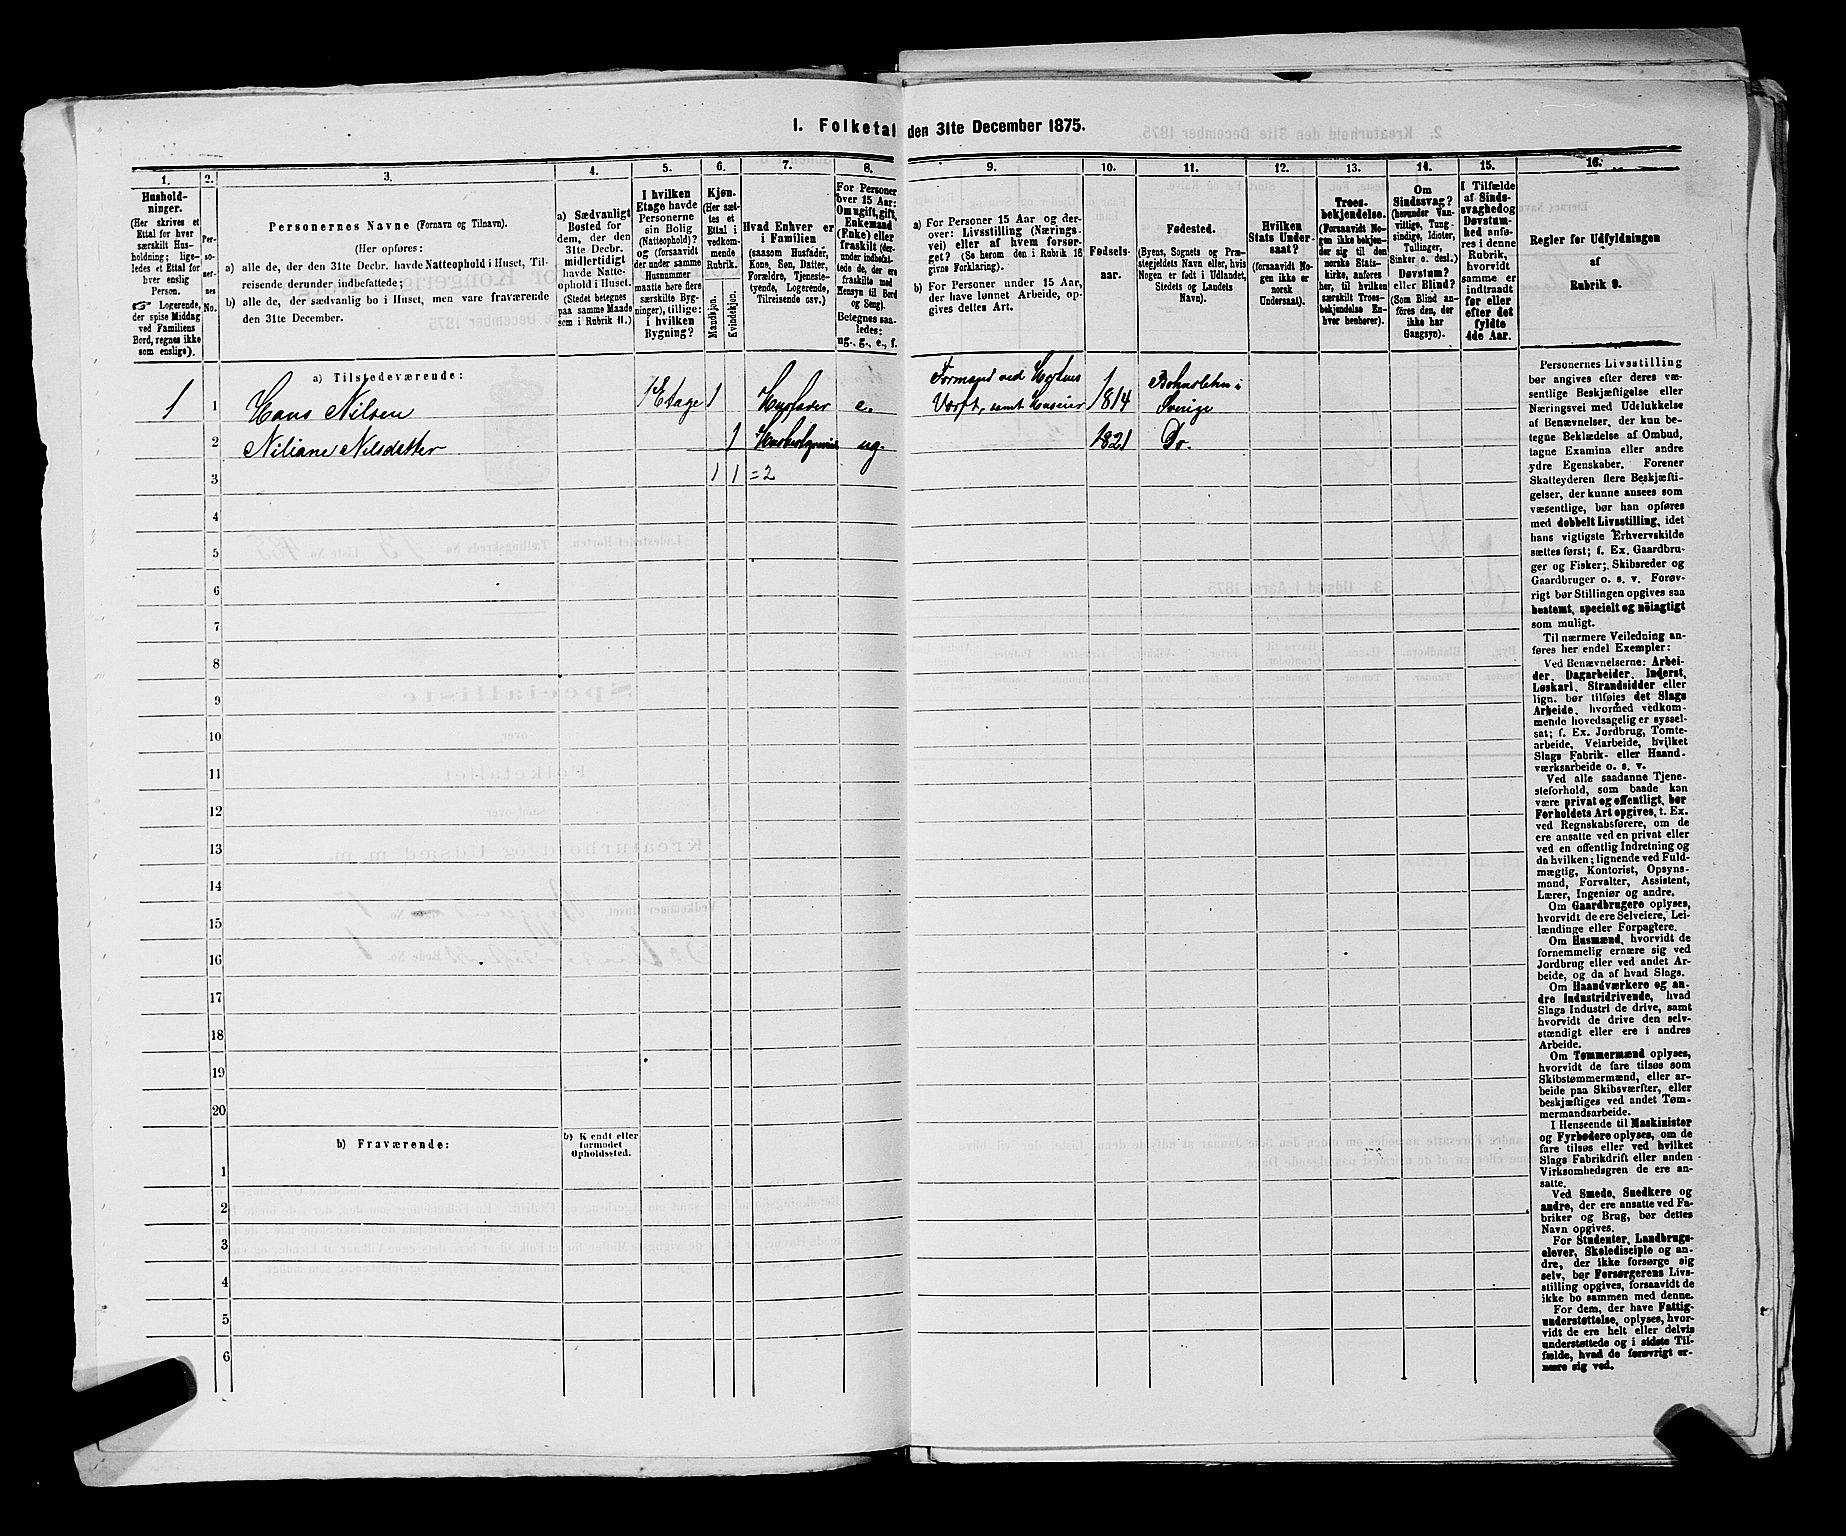 1. Folketal den 31te December 1875.
1.
Hushold-
ninger.
(Her skrives et
Ettal for hver
særskilt Hus-
holdning; lige-
ledes et Ettal for
hver enslig
Person.
☞ Logerende,
der spise Middag
ved Familiens
Bord, regnes ikke
som enslige).
2.
Per-
so-
ner-
nes
No.
3.
Personernes Navne (Fornavn og Tilnavn).
(Her opføres:
a) alle de, der den 31te Decbr. havde Natteophold i Huset, Til-
reisende derunder indbefattede;
b) alle de, der sædvanlig bo i Huset, men vare fraværende
den 31te December.
4.
a) Sædvanligt
Bosted for
dem, der den
31te Decbr.
midlertidigt
havde Natte-
ophold i Huset.
(Stedet betegnes
paa samme Maade
som i Rubrik 11.)
5.
I hvilken
Etage havde
Personerne
sin Bolig
(Natteophold)?
og (forsaavidt
der under samme
Husnummer
maatte høre flere
særskilte Byg-
ninger), tillige:
i hvilken
Bygning?
6.
Kjøn.
(Her sæt-
tes et
Ettal i
vedkom-
mende
Rubrik.
Mandkjøn.
Kvindekjøn.
7.
Hvad Enhver er
i Familien
(saasom Husfader,
Kone, Søn, Datter,
Forældre, Tjeneste-
tyende, Logerende,
Tilreisende osv.)
8.
For Personer
over 15 Aar:
Om ugift, gift,
Enkemand
(Enke) eller
fraskilt (der-
under indbefat-
tede de, der ere
fraskilte med
Hensyn til Bord
og Seng).
Betegnes saa-
ledes:
ug., g., e., f.
9.
a) For Personer 15 Aar og der-
over: Livsstilling (Nærings-
vei) eller af hvem forsør-
get? (Se herom den i Rubrik 16
givne Forklaring).
b) For Personer under 15 Aar,
der have lønnet Arbeide, op-
gives dettes Art.
10.
Fødsels-
aar.
11.
Fødested.
(Byens, Sognets og Præ-
stegjeldets Navn eller, hvis
Nogen er født i Udlandet,
Stedets og Landets
Navn).
12.
Hvilken
Stats Under-
saat?
(forsaavidt No-
gen ikke er
norsk
Undersaat).
13.
Troes-
bekjendelse.
(Forsaavidt No-
gen ikke bekjen-
der sig til den
norske Stats-
kirke, anføres
her, til hvilken
særskilt Troes-
bekjendelse En-
hver henhører).
14.
Om
Sindssvag?
(herunder Van-
vittige, Tung-
sindige, Idioter,
Tullinger,
Sinker o. desl.)
Døvstum?
eller Blind?
(Som Blind an-
føres den, der
ikke har
Gangsyn).
15.
I Tilfælde
af Sinds-
svaghed og
Døvstum-
hed anfø-
res i denne
Rubrik,
hvorvidt
samme er
indtraadt
før eller
efter det
fyldte
4de Aar.
16.
Regler for Udfyldningen
af
Rubrik 9.
a) Tilstedeværende:
1 1 Hans Nilsen 1 Etage 1 Husfader e. Formand ved Hortens Værft, samt Huseier 1814 Bohuslehn i Sverige
2 Niliane Nilsdatter 1 ug. 1821 Do.
3 1 1 = 2
4
5
6
7
8
9
10
11
12
13
14
15
16
17
18
19
20
b) Fraværende:
b) Kjendt eller
formodet
Opholdssted.
1
2
3
4
5
6
Personernes Livsstilling
bør angives efter deres væ-
sentlige Beskjæftigelse eller
Næringsvei med Udelukkelse
af Benævnelser, der kun be-
tegne Beklædelse af Ombud,
tagne Examina eller andre
ydre Egenskaber. Forener
Skatteyderen flere Beskjæfti-
gelser, der kunne ansees som
væsentlige, bør han opføres
med dobbelt Livsstilling, idet
hans vigtigste Erhvervskilde
sættes først; f. Ex. Gaardbru-
ger og Fisker; Skibsreder og
Gaardbruger o. s. v. Forøv-
rigt bør Stillingen opgives saa
bestemt, specielt og nöiagtigt
som muligt.
Til nærmere Veiledning an-
føres her endel Exempler:
Ved Benævnelserne: Arbei-
der, Dagarbeider, Inderst,
Løskarl, Strandsidder eller
lign. bør tilføies det Slags
Arbeide, hvormed vedkom-
mende hovedsagelig er syssel-
sat; f. Ex. Jordbrug, Tomte-
arbeide, Veiarbeide, hvilket
Slags Fabrik- eller Haand-
værksarbeide o. s. v.
Ved alle saadanne Tjene-
steforhold, som baade kan
være privat og offentligt, bør
Forholdets Art opgives, t. Ex.
ved Regnskabsførere, om de
ere ansatte ved en privat eller
ved en offentlig Indretning og
da hvilken; lignende ved Fuld-
mægtig, Kontorist, Opsyns-
mand, Forvalter, Assistent,
Lærer, Ingeniør og andre.
Om Gaardbrugere oplyses,
hvorvidt de ere Selveiere, Lei-
lændinge eller Forpagtere.
Om Husmænd, hvorvidt de
fornemmelig ernære sig ved
Jordbrug eller ved andet Ar-
beide, og da af hvad Slags.
Om Haandværkere og an-
dre Industridrivende, hvad
Slags Industri de drive, samt
hvorvidt de drive den selv-
stændigt eller ere i andres
Arbeide.
Om Tømmermænd oplyses,
hvorvidt de fare tilsøs som
Skibstømmermænd, eller ar-
beide paa Skibsværfter, eller
beskjæftiges ved andet Tøm-
mermandsarbeide.
I Henseende til Maskinister
og Fyrbødere oplyses, om de
fare tilsøs eller ved hvilket
Slags Fabrikdrift eller anden
Virksomhedsgren de ere an-
satte.
Ved Smede, Snedkere og
andre, der ere ansatte ved Fa-
briker og Brug, bør dettes
Navn opgives.
For Studenter, Landbrugs-
elever, Skoledisciple og an-
dre, der ikke forsørge sig
selv, bør Forsørgerens Livs-
stilling opgives, forsaavidt de
ikke bo sammen med denne.
For dem, der have Fattig-
understøttelse, oplyses, hvor-
vidt de ere helt eller delvis
understøttede og i sidste Til-
fælde, hvad de forøvrigt er-
nære sig ved.